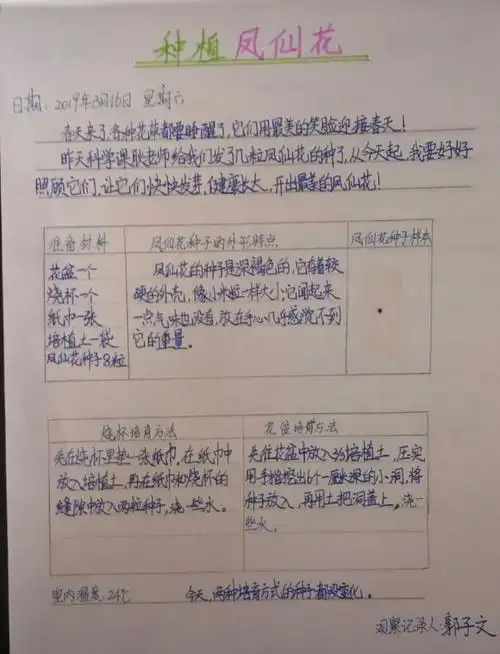 种植凤仙花
日期：2019年3月16日 星期六
春天来了，各种花草都要睡醒了，它们用最美的笑脸迎接春天！
昨天科学课耿老师给我们发了几粒凤仙花的种子，从今天起，我要好好
照顾它们，让它们快快发芽，健康长大，开出最美的凤仙花！
准备材料
花盆一个
烧杯一个
纸巾一张
培植土一袋
凤仙花种子8粒
凤仙花种子的外形特点
凤仙花的种子是深褐色的，它有着较
硬的外壳，像小米粒一样大小；它闻起来
一点气味也没有，放在手心几乎感觉不到
它的重量。
凤仙花种子样本
烧杯培育方法
先在烧杯里垫一张纸巾，在纸巾中
放入培植土，再在纸巾和烧杯的
缝隙中放入两粒种子，浇一些水。
花盆培育方法
先往花盆中放入3/5培植土，压实，
用手指挖出6个一厘米深的小洞，将
种子放入，再用土把洞盖上，浇一
些水。
室内温度：24℃ 今天，两种培育方式的种子都没变化。
观察记录人：郭子文